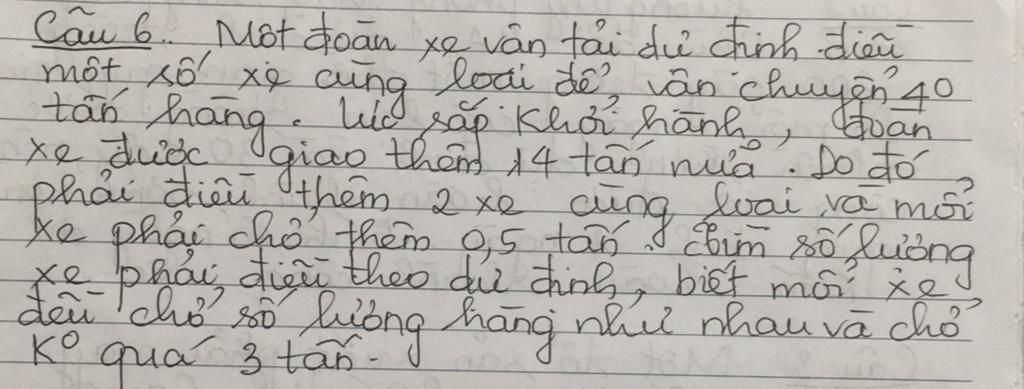 Câu 6. Một đoàn xe vận tải dự định điều
một số xe cùng loại để vận chuyển 40
tấn hàng. Lúc sắp khởi hành, đoàn
xe được giao thêm 14 tấn nữa. Do đó
phải điều thêm 2 xe cùng loại và mỗi
xe phải chở thêm 0,5 tấn. Tìm số lượng
xe phải điều theo dự định, biết mỗi xe
đều chở số lượng hàng như nhau và chở
ko quá 3 tấn.